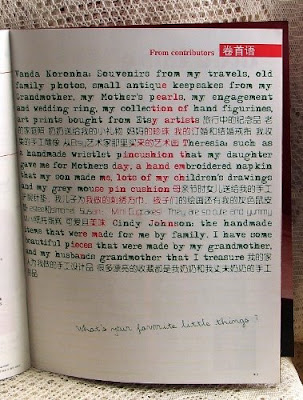 From contributors 卷首语
Vanda Noronha: Souvenirs from my travels, old
family photos, small antique keepsakes from my
Grandmother, my Mother's pearls, my engagement
and wedding ring, my collection of hand figurines,
art prints bought from Etsy artists 旅行中的纪念品 老
的家庭照 奶奶送给我的小礼物 妈妈的珍珠 我的订婚和结婚戒指 我收
从Etsy艺术家那里买来的艺术画 Theresia: such as
a handmade wristlet pincushion that my daughter
gave me for Mothers day, a hand embroidered napkin
that my son made me, lots of my children's drawings
and my grey mouse pin cushion 母亲节时女儿送给我的手工
我儿子为我做的刺绣方巾 孩子们的绘画还有我的灰色鼠皮
Mini Cupcakes! They are so cute and yummy
Cindy Johnson: the handmade
items that were made for me by family. I have some
beautiful pieces that were made by my grandmother,
and my husbands grandmother that I treasure 我的家
人为我做的手工设计品 很多漂亮的收藏都是我奶奶和我丈夫奶奶的手工
What's your favorite little things?